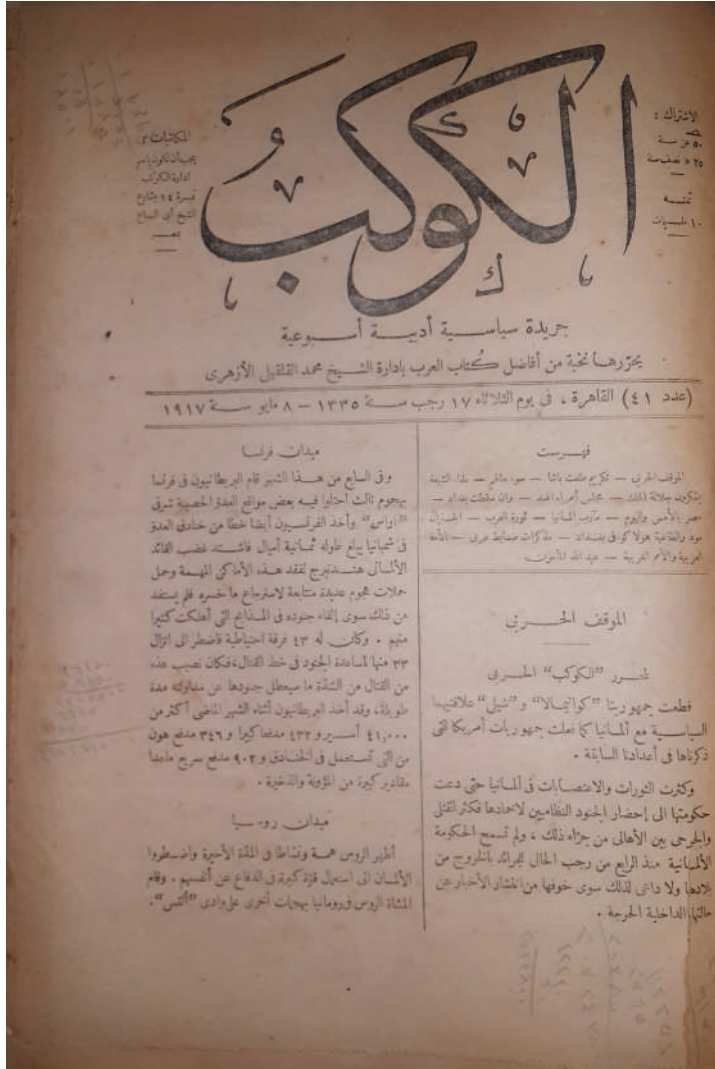 الكوكب
الاشتراك :
٥٠ عن سنة
٢٥ « نصف سنة
ثمنه
١٠ مليمات
المكاتبات :
يجب أن تكون باسم
ادارة الكوكب
نمرة ١٤ بشارع
الشيخ أبى السباع
بمصر
جريدة سياسية أدبية أسبوعية
يحررها نخبة من أفاضل كُتاب العرب بادارة الشيخ محمد القلقيلى الأزهرى
(عدد ٤١) القاهرة ، فى يوم الثلاثاء ١٧ رجب سنة ١٣٣٥ – ٨ مايو سنة ١٩١٧
فهرست
الموقف الحربى — تكريم طلعت باشا — — لماذا الشيعة
يشكرون جلالة الملك — مجلس أمراء الهند — وان سقطت بغداد —
مصر بالأمس واليوم — مآرب المانيا — ثورة العرب — الجنرال
مود والطاغية هولاكو فى بغداد — مذكرات ضابط عربى — الأمة
العربية والأمم الغربية — عبد الله المأمون
الموقف الحربى
لمحرر "الكوكب" الحربى
قطعت جمهوريتا "كواتيمالا" و"شيلى" علاقتيهما
السياسية مع ألمانيا كما فعلت جمهوريات أمريكا التى
ذكرناها فى أعدادنا السابقة .
وكثرت الثورات والاعتصابات فى ألمانيا حتى دعت
حكومتها الى إحضار الجنود النظاميين لاخمادها فكثر القتلى
والجرحى بين الأهالى من جراء ذلك ، ولم تسمح الحكومة
الألمانية منذ الرابع من رجب الحالى للجرائد بالخروج من
بلادها ولا داعى لذلك سوى خوفها من انتشار الأخبار عن
حالتها الداخلية الحرجة .
ميدان فرنسا
وفى السابع من هذا الشهر قام البريطانيون فى فرنسا
بهجوم ثالث احتلوا فيه بعض مواقع العدو الحصينة شرقى
"أراس" وأخذ الفرنسيون أيضا خطا من خنادق العدو
فى شمبانيا يبلغ طوله ثمانية أميال فاشتد غضب القائد
الألمانى هندنبرج لفقد هذه الأماكن المهمة وحمل
حملات هجوم عديدة متتابعة لاسترجاع ما خسره فلم يستفد
من ذلك سوى إلقاء جنوده فى المذابح التى أهلكت كثيرا
منهم . وكان له ٤٣ فرقة احتياطية فاضطر الى انزال
٣٣ منها لمساعدة الجنود فى خط القتال، فكان نصيب هذه
من القتال من الشدة ما سيعطل جنودها عن مداولته مدة
طويلة، وقد أخذ البريطانيون أثناء الشهر الماضى أكثر من
٤١,٠٠٠ أسير و ٤٣٢ مدفعا كبيرا و ٣٤٦ مدفع هون
من التى تستعمل فى الخنادق و ٩٠٢ مدفع سريع ماعدا
مقادير كبيرة من المؤونة والذخيرة .
ميدان روسيا
أظهر الروس همة ونشاطا فى المدة الأخيرة واضطروا
الألمان الى استعمال قوة كبيرة فى الدفاع عن أنفسهم . وقام
المشاة الروس فى رومانيا بهجمات أخرى على وادى "ألقس".